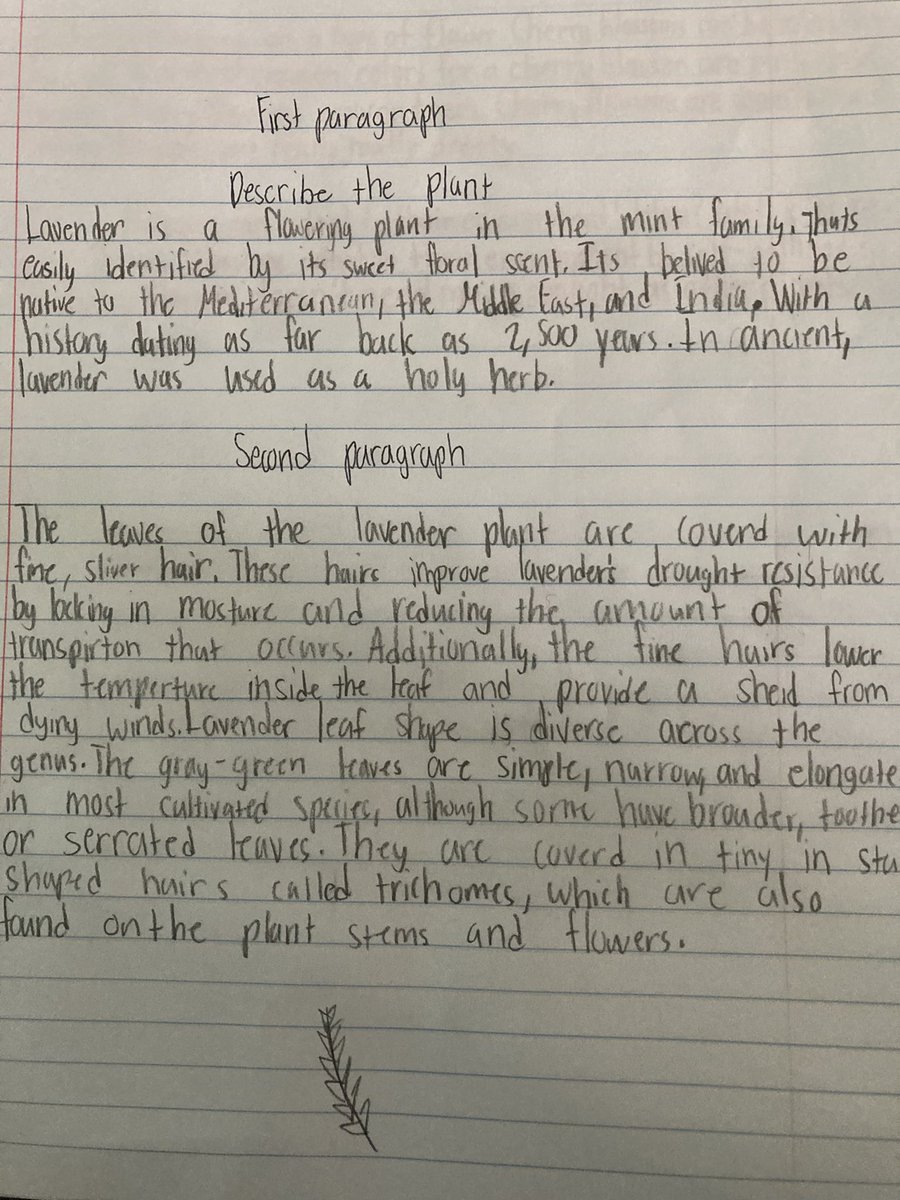 First paragraph
Describe the plant
Lavender is a flowering plant in the mint family. Thats
easily identified by its sweet floral scent. Its belived to be
native to the Mediterranean, the Middle East, and India, With a
history dating as far back as 2,500 years. In ancient,
lavender was used as a holy herb.
Second paragraph
The leaves of the lavender plant are coverd with
fine, sliver hair. These hairs improve lavender's drought resistance
by locking in mosture and reducing the amount of
transpirton that occurs. Additionally, the fine hairs lower
the temperture inside the leaf and provide a sheid from
dying winds. Lavender leaf shape is diverse across the
genus. The gray-green leaves are simple, narrow, and elongate
in most cultivated species, although some have broader, toothe
or serrated leaves. They are coverd in tiny in sta
shaped hairs called trichomes, which are also
found on the plant stems and flowers.